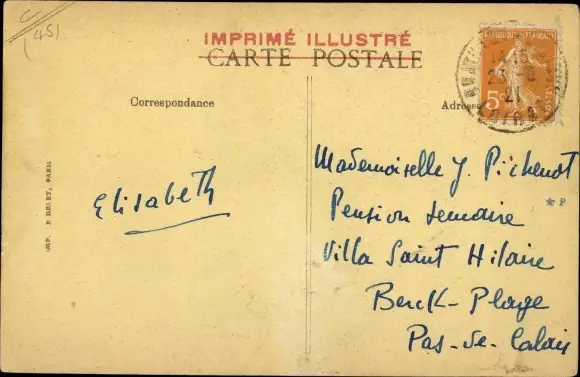 (45).
IMPRIMÉ ILLUSTRÉ
CARTE POSTALE
Correspondance
Adresse
REPUBLIQUE FRANÇAISE
5c
POSTES
21
IMP. E DELEY, PARIS
Elisabeth
Mademoiselle J. Pichenot
Pension Lemaire
Villa Saint Hilaire
Berck-Plage
Pas-de-Calais
* P